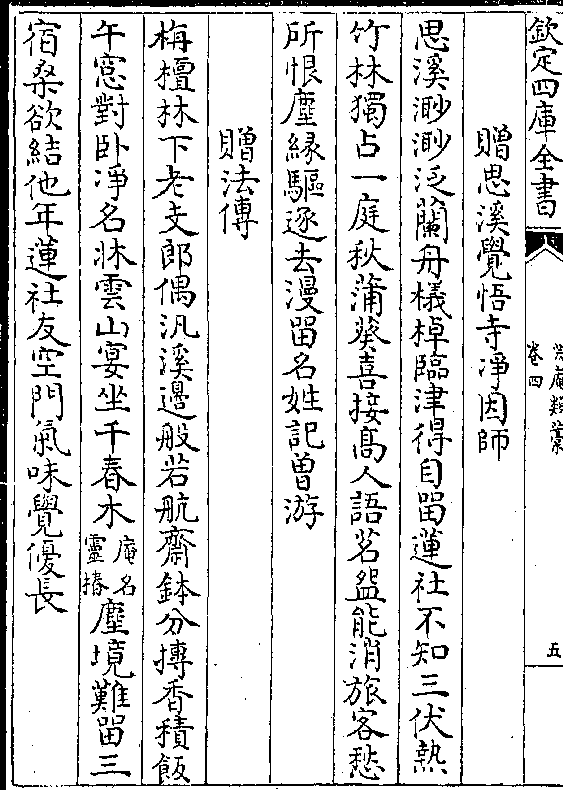 欽定四庫全書
卷四
五
贈思溪覺悟寺淨因師
思溪渺渺泛蘭舟檥棹臨津得自留蓮社不知三伏熱
竹林獨占一庭秋蒲葵喜接髙人語茗盌能消旅客愁
所恨塵縁驅逐去漫留名姓記曽游
贈法傅
栴檀林下老支郎偶汎溪邉般若航齋鉢分摶香積飯
午窓對卧淨名牀雲山宴坐千春木庵名靈椿塵境難留三
宿桑欲結他年蓮社友空門氣味覺優長